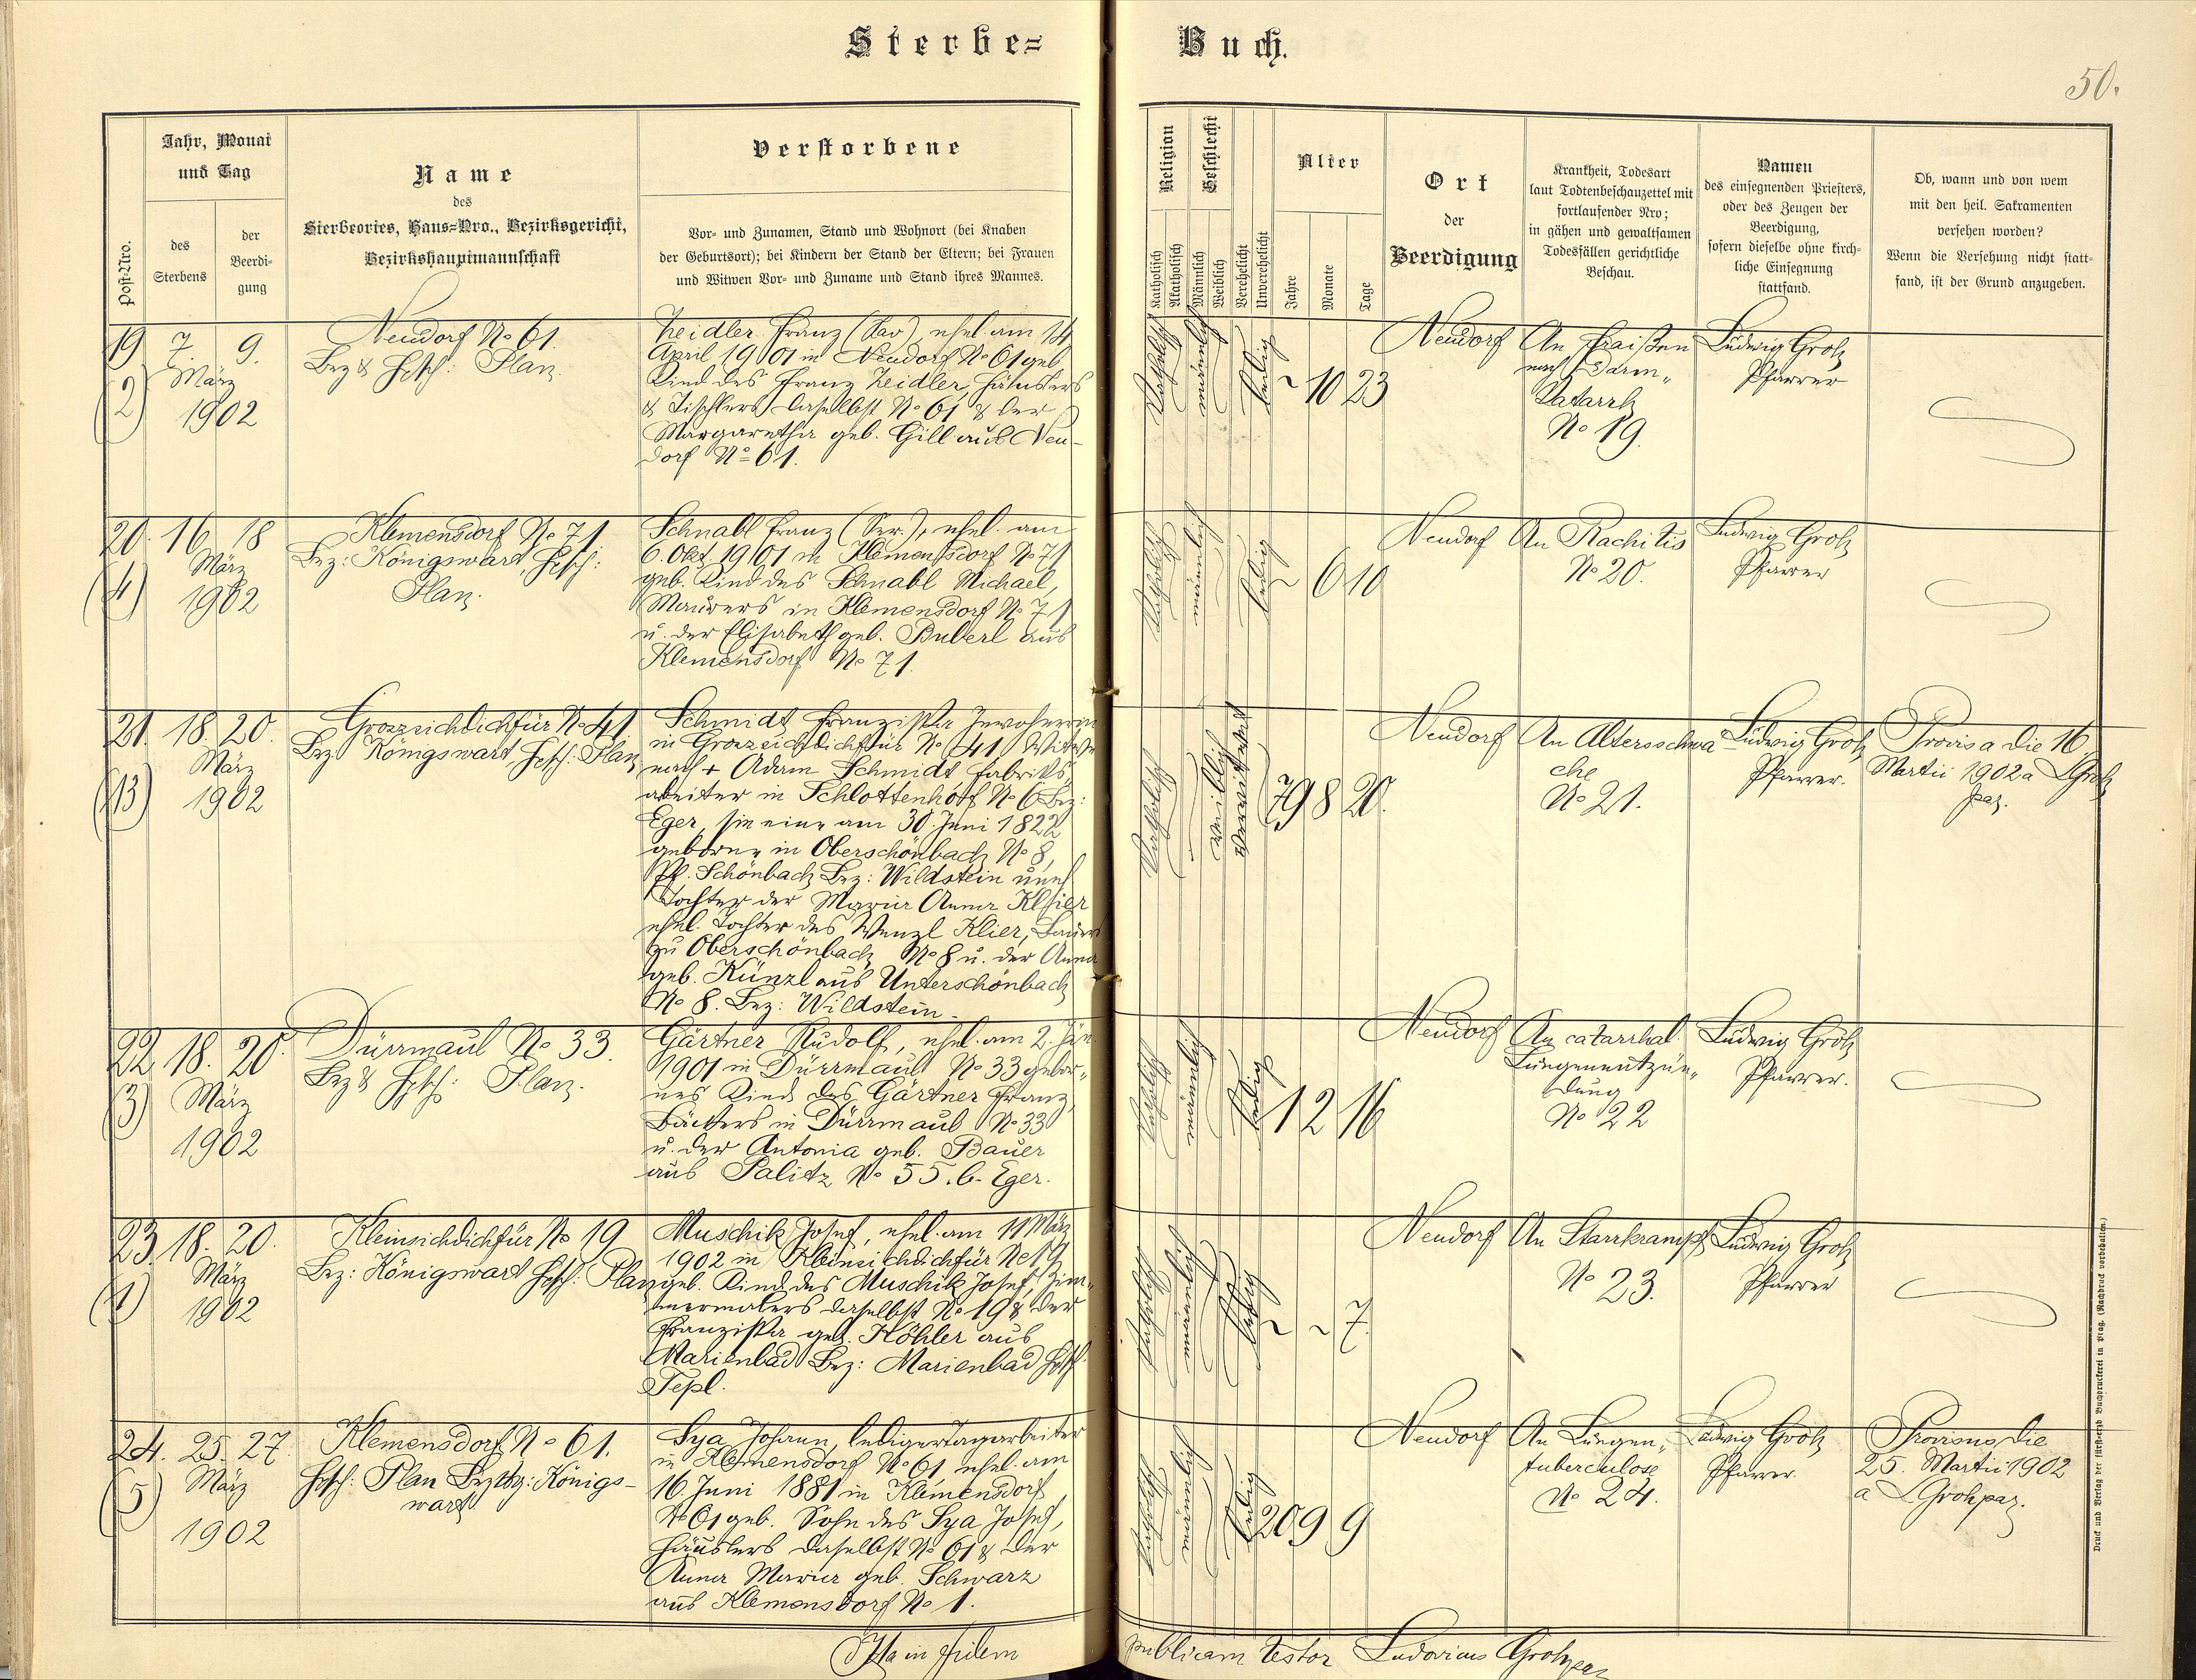 Sterbe= Buch.
50.
Post-Nro.
Jahr, Monat
und Tag
des
Sterbens
der
Beerdi-
gung
Name
des
Sterbeortes, Haus=Nro., Bezirksgericht,
Bezirkshauptmannschaft
Verstorbene
Vor- und Zunamen, Stand und Wohnort (bei Knaben
der Geburtsort); bei Kindern der Stand der Eltern; bei Frauen
und Witwen Vor- und Zuname und Stand ihres Mannes.
Religion
Katholisch
Akatholisch
Geschlecht
Männlich
Weiblich
Verehelicht
Unverehelicht
Alter
Jahre
Monate
Tage
Ort
der
Beerdigung
Krankheit, Todesart
laut Todtenbeschauzettel mit
fortlaufender Nro;
in gähen und gewaltsamen
Todesfällen gerichtliche
Beschau.
Namen
des einsegnenden Priesters,
oder des Zeugen der
Beerdigung,
sofern dieselbe ohne kirch-
liche Einsegnung
stattfand.
Ob, wann und von wem
mit den heil. Sakramenten
versehen worden?
Wenn die Versehung nicht statt-
fand, ist der Grund anzugeben.
19 7 9.
März
(2)
1902
Neudorf No 61.
Bez & Htsch: Plan.
Zeidler Franz ehel. am 14
April 1901 in Neudorf No 61 geb.
Kind des Franz Zeidler, Häuslers
& Tischlers daselbst No 61 & der
Margaretha geb. Gill aus Neu-
dorf No 61.
katholisch
männlich
ledig
~ 10 23
Neudorf
An Fraißen
nach Darm-
katarrh
No 19.
Ludwig Groh
Pfarrer
20. 16 18
März
(4)
1902
Klemensdorf No 71
Bez: Königswart Htsch:
Plan.
Schnabl Franz (Ser.), ehel. am
6. Okt. 1901 in Klemensdorf No 71
geb. Kind des Schnabl Michael,
Maurers in Klemensdorf No 71
u. der Elisabeth geb. Buberl aus
Klemensdorf No 71.
katholisch
männlich
ledig
~ 6 10
Neudorf
An Rachitis
No 20.
Ludwig Groh
Pfarrer
21. 18. 20.
März
(13)
1902
Groszsichdichfür No 41
Bez Königswart, Htsch: Plan
Schmidt Franziska Inwohnerin
in Groszsichdichfür No 41 Witwe
nach + Adam Schmidt Fabriks-
arbeiter in Schlottenhof No 6 Bez:
Eger, sie eine am 30. Juni 1822
geborne in Oberschönbach No 8,
Pf. Schönbach Bez: Wildstein unehl
Tochter der Maria Anna Klier
ehel. Tochter des Wenzl Klier, Bauers
zu Oberschönbach No 8 u. der Anna
geb. Künzl aus Unterschönbach
No 8. Bez: Wildstein.
katholisch
weiblich
verwitwet
79 8 20.
Neudorf
An Altersschwä
che
No 21.
Ludwig Groh
Pfarrer.
Provisa die 16
Martii 1902 a L. Groh
par.
22. 18. 20.
März
(3)
1902
Dürrmaul No 33.
Bez & Htsch: Plan.
Gärtner Rudolf, ehel. am 2. Jän.
1901 in Dürrmaul No 33 gebor-
nes Kind des Gärtner Franz,
Bäckers in Dürrmaul No 33
u. der Antonia geb. Bauer
aus Palitz No 55. b. Eger.
katholisch
männlich
ledig
1 2 16
Neudorf
An catarrhal.
Lungenentzün-
dung
No 22
Ludwig Groh
Pfarrer.
23. 18. 20.
März
(1)
1902
Kleinsichdichfür No 19
Bez: Königswart Htsch: Plan
Muschik Josef, ehel. am 11 März
1902 in Kleinsichdichfür No 19
geb. Kind des Muschik Josef, Zim-
mermalers daselbst No 19 & der
Franziska geb. Köhler aus
Marienbad Bez: Marienbad Htsch.
Tepl.
katholisch
männlich
ledig
~ ~ 7.
Neudorf
An Starrkrampf
No 23.
Ludwig Groh
Pfarrer
24. 25. 27.
März
(5)
1902
Klemensdorf No 61.
Htsch: Plan Bez: Königs-
wart
Sya Johann, lediger Tagarbeiter
in Klemensdorf No 61 ehel. am
16. Juni 1881 in Klemensdorf
No 61 geb. Sohn des Sya Josef,
Häuslers daselbst No 61 & der
Anna Maria geb. Schwarz
aus Klemensdorf No 1.
katholisch
männlich
ledig
20 9 9
Neudorf
An Lungen-
tuberculose
No 24.
Ludwig Groh
Pfarrer.
Provisus die
25. Martii 1902
a L. Groh par.
Ita in fidem publicam testor Ludovicus Groh par
Druck und Verlag der fürst-erzb. Buchdruckerei in Prag. (Nachdruck vorbehalten.)